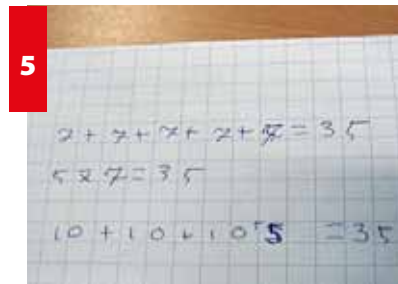 5
7 + 7 + 7 + 7 + 7 = 35
5 x 7 = 35
10 + 10 + 10 + 5 = 35